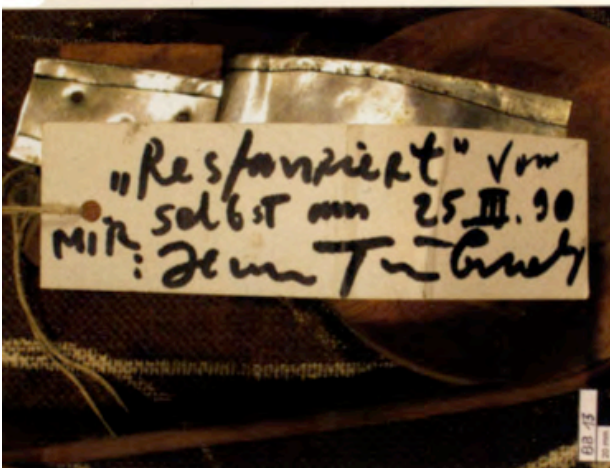 „Restauriert" Von
MIR selbst am 25 III. 90
: Jean Tinguely
BB 13